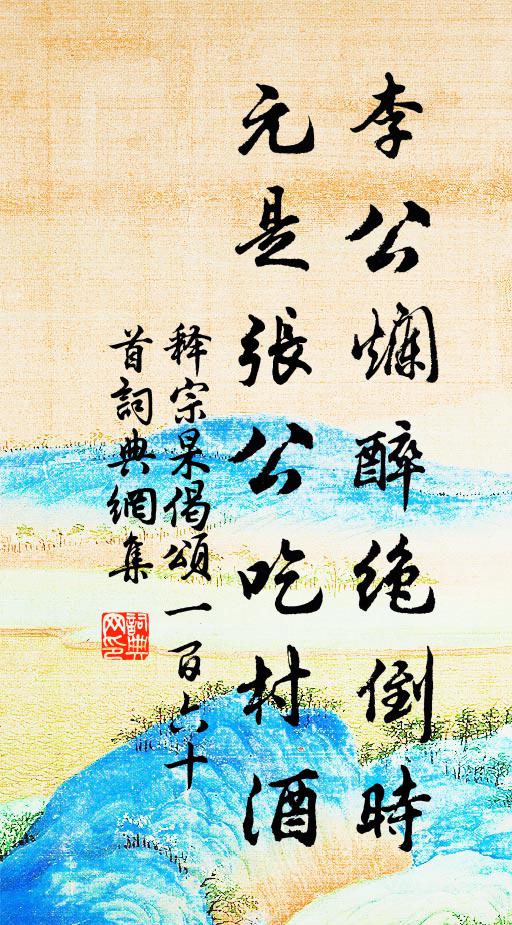 李公爛醉絶倒時
元是張公吃村酒
释宗杲偈頌一百六十
首詞典網集
詞典
网印